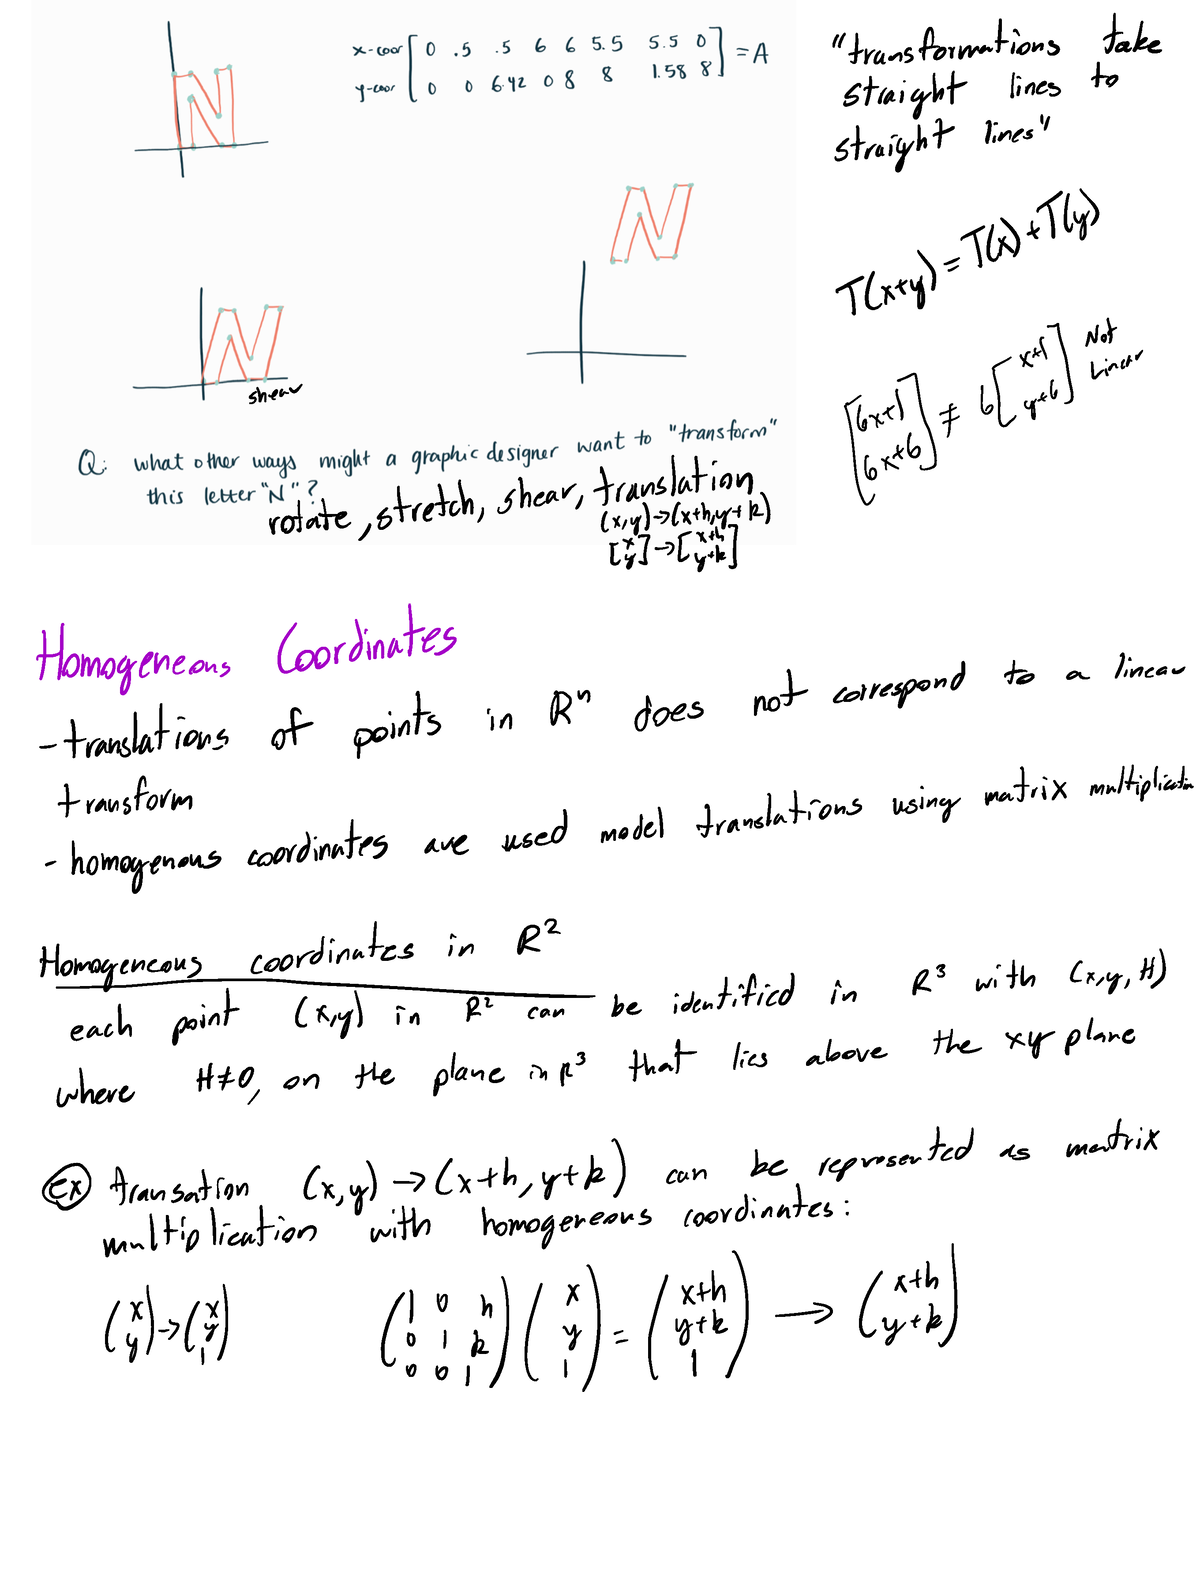 x-coor [ 0 .5 .5 6 6 5.5 5.5 0 ] = A
y-coor [ 0 0 6.42 0 8 8 1.58 8 ]
"transformations take
straight lines to
straight lines"
T(x+y) = T(x) + T(y)
shear
[6x+1] ≠ 6 [x+1] Not
[6x+6] [y+6] Linear
Q: what other ways might a graphic designer want to "transform"
this letter "N"?
rotate, stretch, shear, translation
(x,y)→(x+h,y+k)
[x y]→[x+h y+k]
Homogeneous Coordinates
- translations of points in Rⁿ does not correspond to a linear
transform
- homogenous coordinates are used model translations using matrix multiplication
Homogeneous coordinates in R²
each point (x,y) in R² can be identified in R³ with (x,y,H)
where H≠0, on the plane in R³ that lies above the xy plane
Ex transation (x,y) → (x+h, y+k) can be represented as matrix
multiplication with homogeneous coordinates:
(x) → (x) (1 0 h) (x) = (x+h) → (x+h)
(y) (y) (0 1 k) (y) (y+k) (y+k)
(1) (0 0 1) (1) (1)